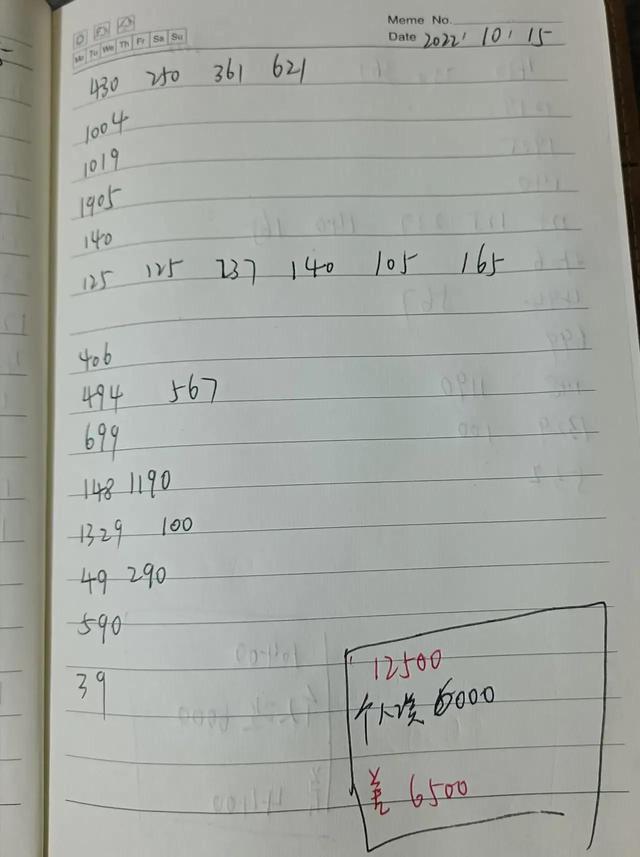 Meme No.
Mo Tu We Th Fr Sa Su
Date 2022 10 15
430 250 361 621
1004
1019
1905
140
125 125 237 140 105 165
406
494 567
699
148 1190
1329 100
49 290
590
39
12500
个人奖 6000
差 6500